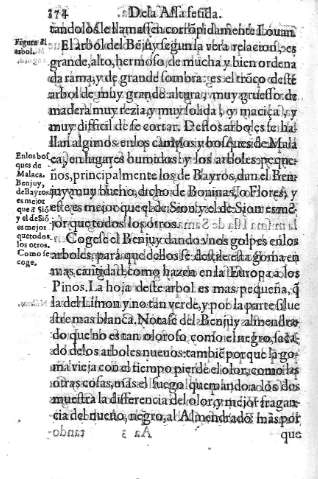 174 De la Assa fetida.
tandolos le llamassen corropidamente Louan.
Figura del
arbol.
El arbol del Bējuy segun la vera relacion, es
grande, alto, hermoso, de mucha y bien ordena
da rama, y de grande sombra: es el trōco deste
arbol de muy grande altura, muy gruesso, de
madera muy rezia, y muy solida, y maciça, y
muy difficil de se cortar. Destos arboles se ha
llan algunos en los campos y bosques de Mala
En los bos
ques de
Malaca.
Benjuy,
de Bayros
es mejor
que el Siō
y el de Siō
es mejor
que todos
los otros.
ca, en lugares humidos: y los arboles peque-
ños, principalmente los de Bayros, dan el Ben-
juy muy bueno, dicho de Boninas, o Flores, y
este es mejor que el de Sion: y el de Sion es me-
jor que todos los otros.
Como se
coge.
Cogese el Benjuy dando vnos golpes en los
arboles, para que dellos se destile esta goma en
mas cantidad: como hazen en la Europa a los
Pinos. La hoja deste arbol es mas pequeña, q̄
la del Limon y no tan verde, y por la parte silue
stre mas blanca. Notase del Benjuy almendra
do que no es tan oloroso, como el negro, saca
do de los arboles nueuos: tambiē porque la go
ma vieja con el tiempo pierde el olor, como las
otras cosas, mas el fuego quemandora los dos
muestra la differencia del olor, y mejor fragan-
cia del nueuo, negro, al Almendrado: mas por
Aa 3
que